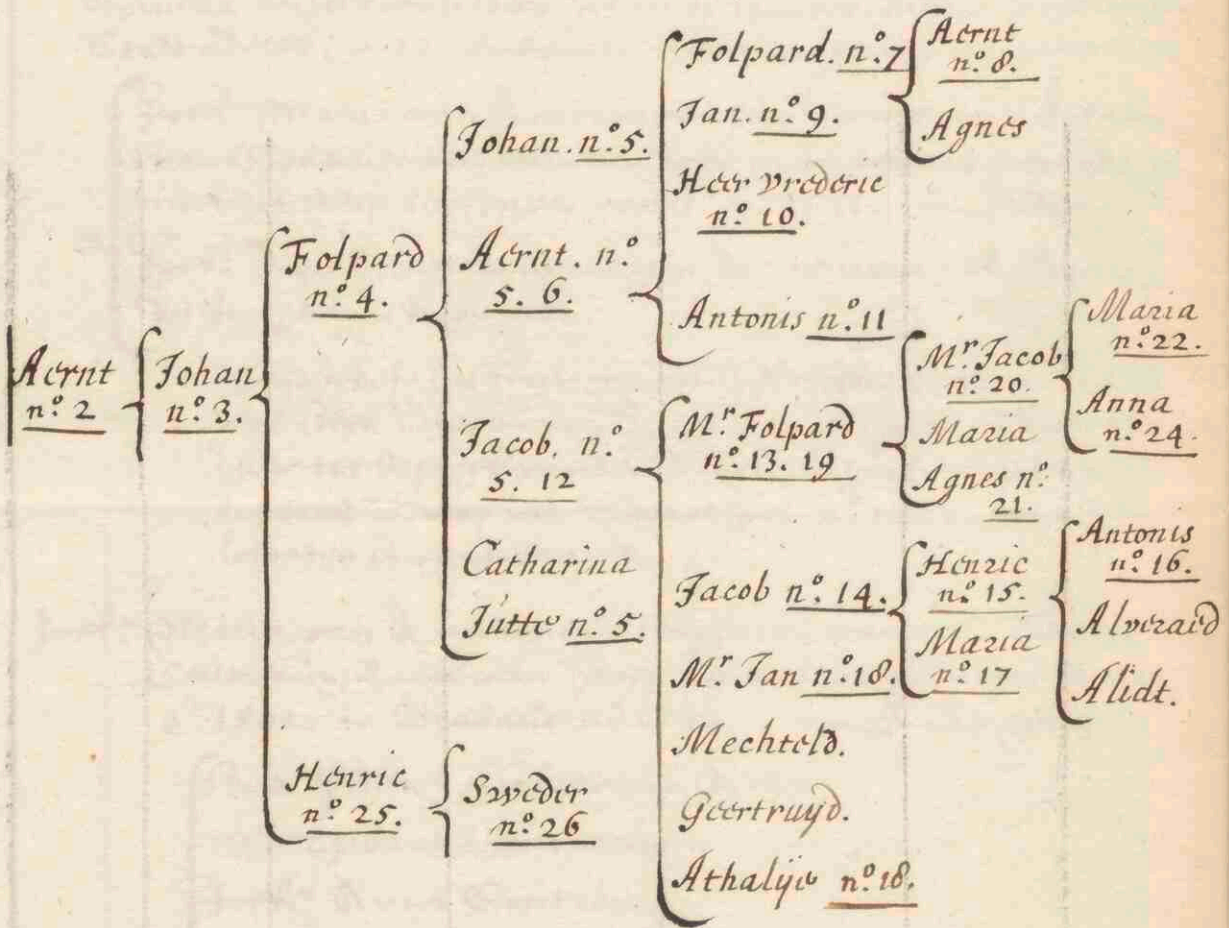 Aernt
n.o 2
Johan
n.o 3.
Folpard
n.o 4.
Henric
n.o 25.
Johan. n.o 5.
Aernt. n.o
5. 6.
Jacob. n.o
5. 12
Catharina
Jutte n.o 5.
Sweder
n.o 26
Folpard. n.o 7
Jan. n.o 9.
Heer vrederic
n.o 10.
Antonis n.o 11
M.r Folpard
n.o 13. 19
Jacob n.o 14.
M.r Jan n.o 18.
Mechteld.
Geertruyd.
Athalÿe n.o 18.
Aernt
n.o 8.
Agnes
M.r Jacob
n.o 20.
Maria
Agnes n.o
21.
Henric
n.o 15.
Maria
n.o 17
Maria
n.o 22.
Anna
n.o 24.
Antonis
n.o 16.
Alveraed
Alidt.